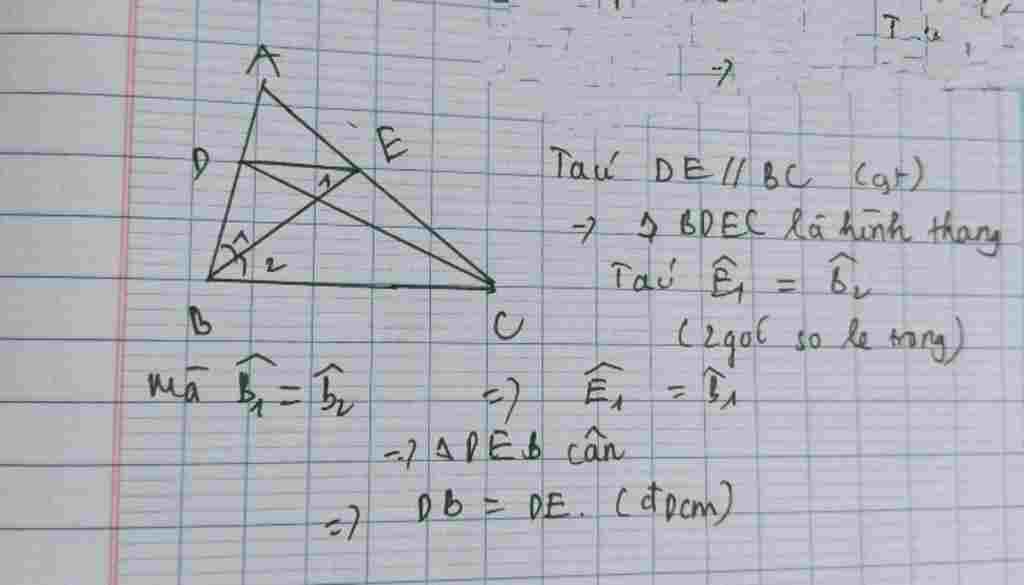 A
D
E
1
2
B
C
Ta có DE // BC (gt)
-> ◊ BDEC là hình thang
Ta có Ê₁ = b̂₂
(2 góc so le trong)
mà B̂₁ = b̂₂ => Ê₁ = b̂₁
=> Δ DEB cân
=> DB = DE. (đpcm)